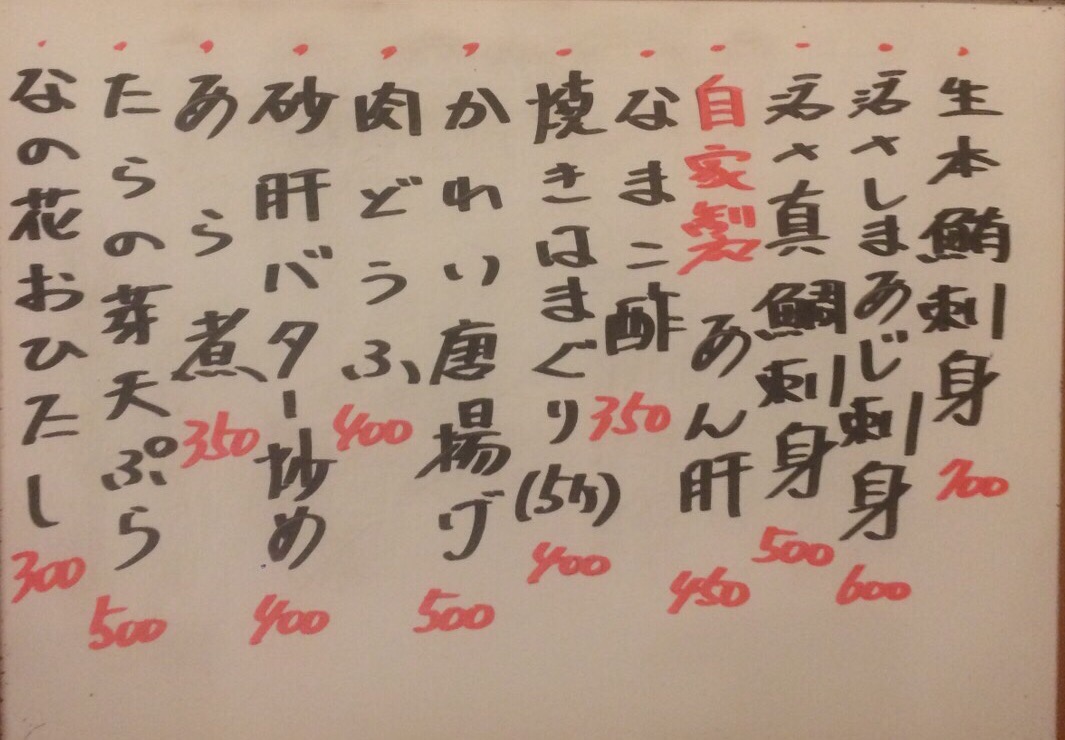 ・生本鮪刺身 700
・活さしまあじ刺身 600
・活さ真鯛刺身 500
・自家製 あん肝 450
・なまこ酢 350
・焼きはまぐり(5ケ) 400
・かれい唐揚げ 500
・肉どうふ 400
・砂肝バター炒め 400
・あら煮 350
・たらの芽天ぷら 500
・なの花おひたし 300